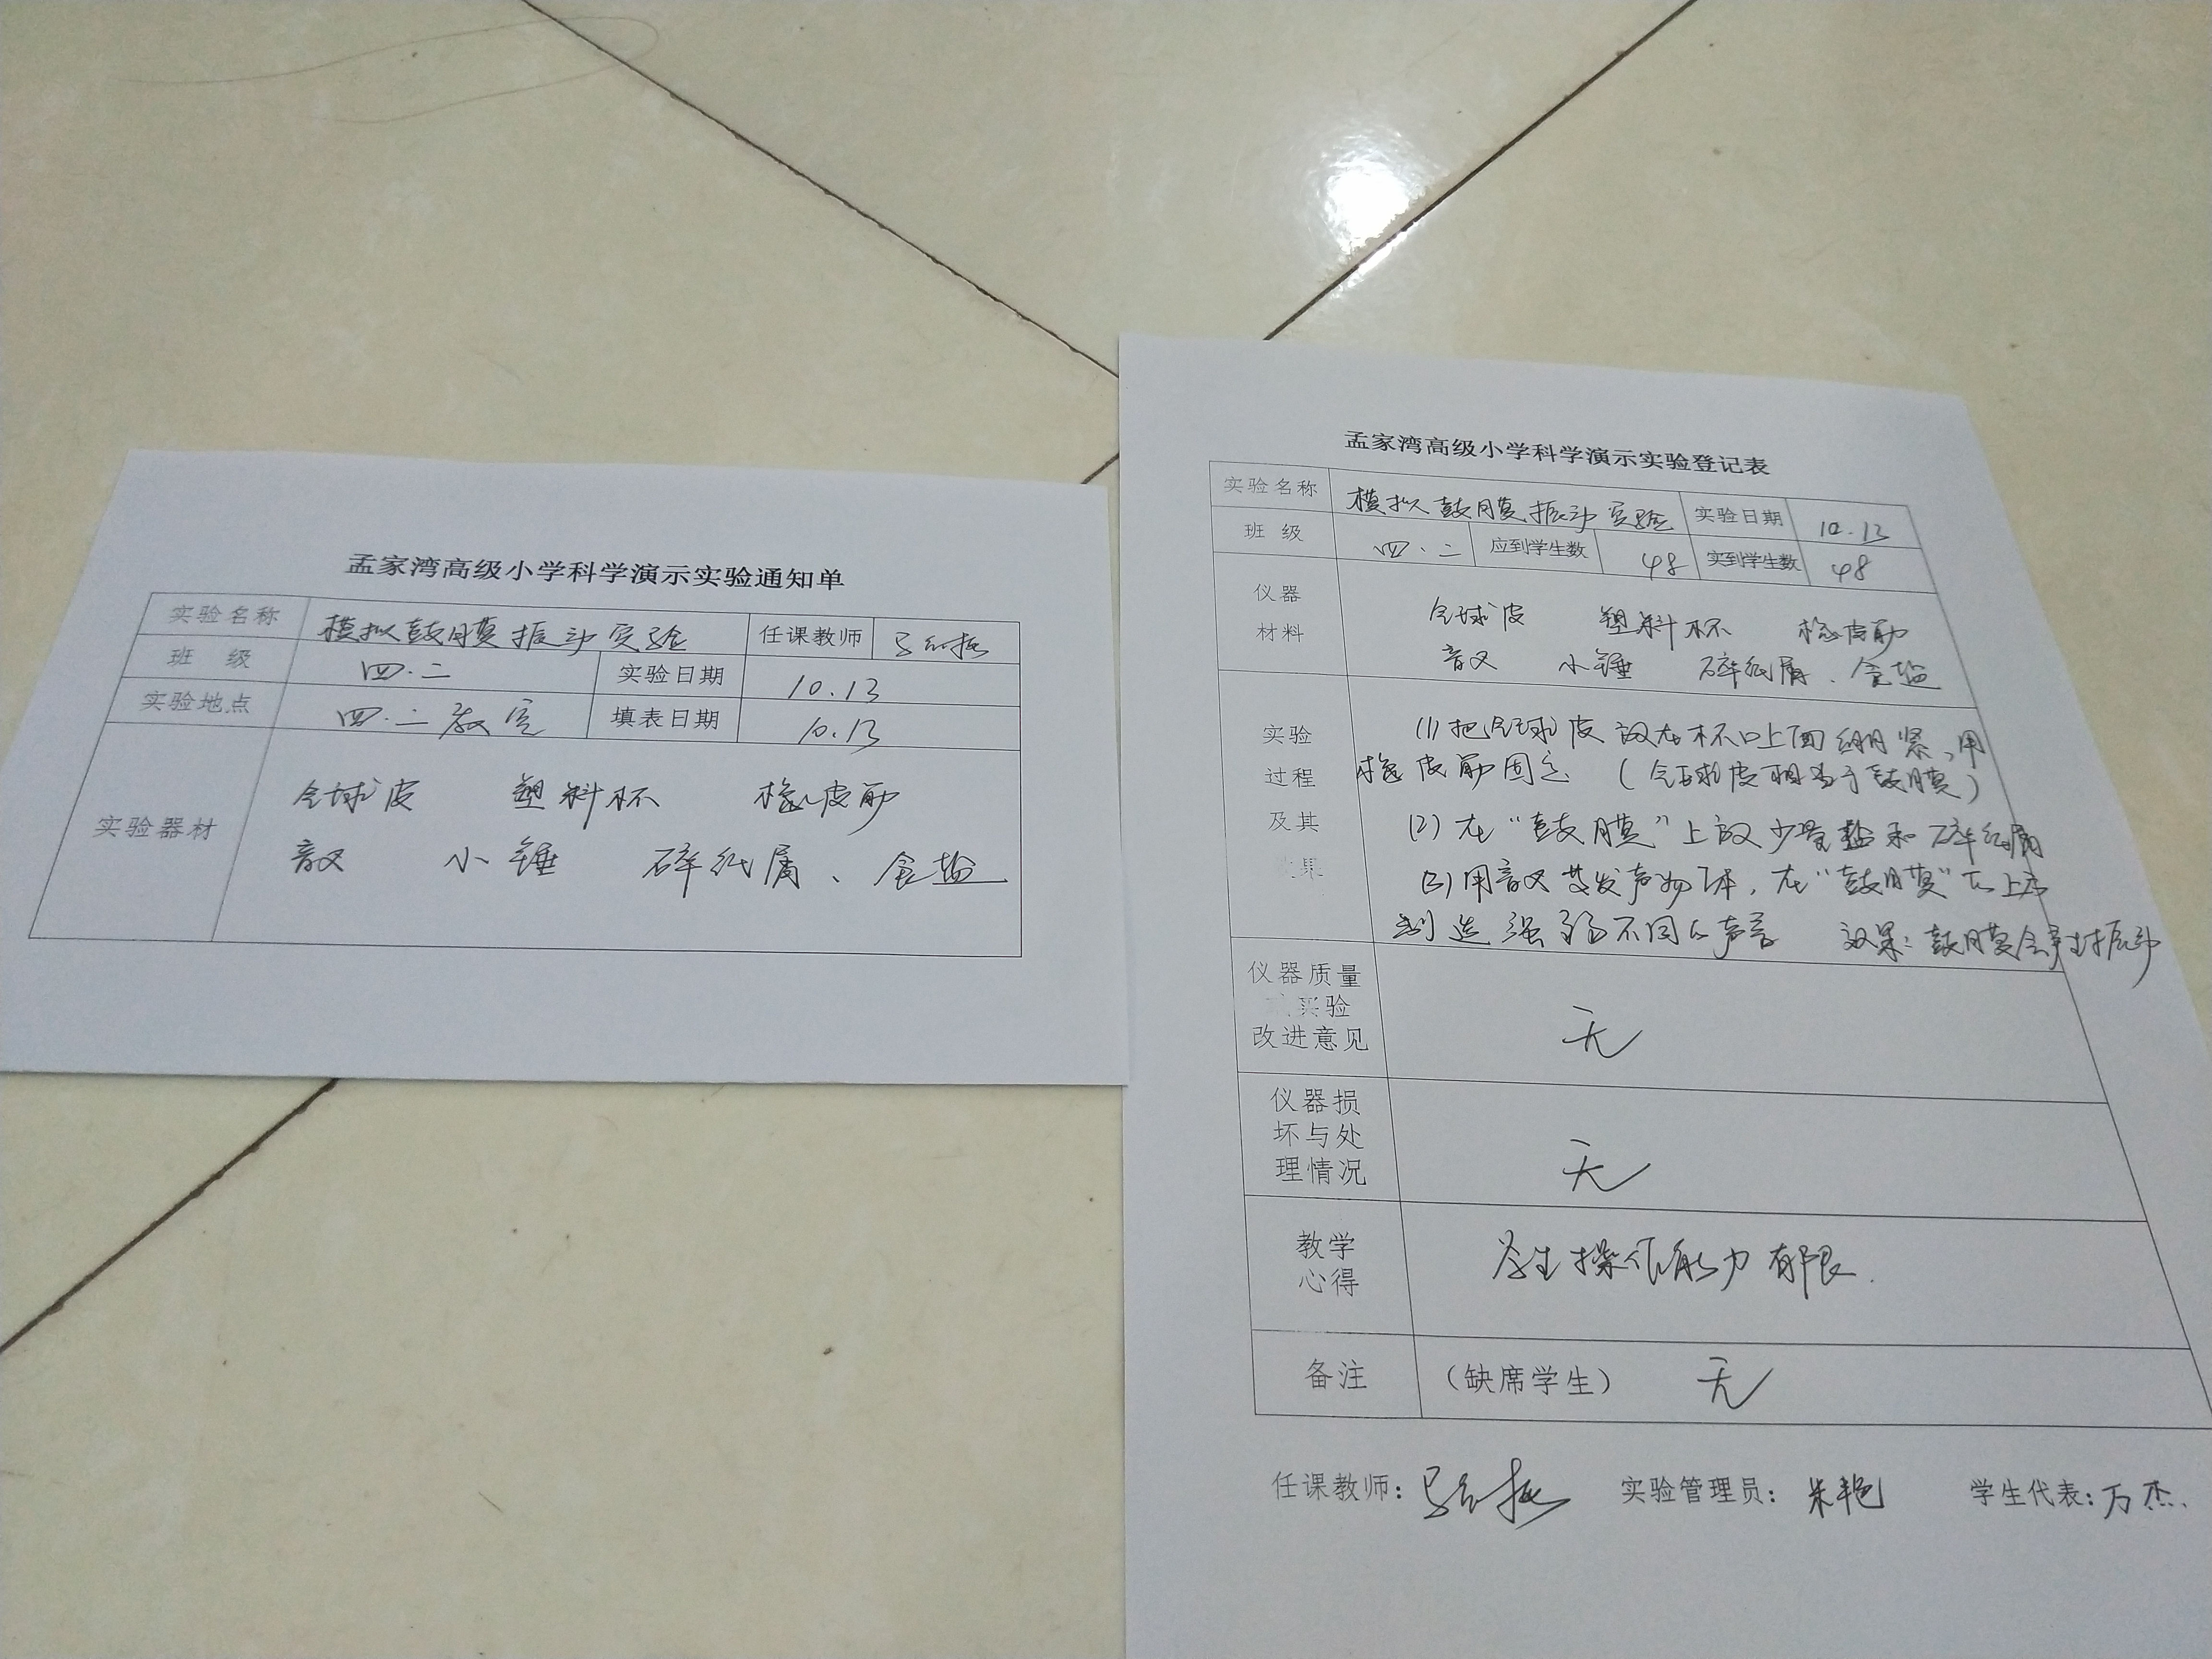 孟家湾高级小学科学演示实验通知单
实验名称 模拟鼓膜振动实验 任课教师
班 级 四.二 实验日期 10.13
实验地点 四.二教室 填表日期 10.13
实验器材
球皮 塑料杯 橡皮筋
音叉 小锤 碎纸屑、食盐
孟家湾高级小学科学演示实验登记表
实验名称 模拟鼓膜振动实验 实验日期 10.13
班 级 四.二 应到学生数 48 实到学生数 48
仪器
材料
球皮 塑料杯 橡皮筋
音叉 小锤 碎纸屑、食盐
实验
过程
及其
果
(1)把球皮放在杯口上面绷紧,用
橡皮筋固定 (球皮相当于鼓膜)
(2)在“鼓膜”上放少量盐和碎纸屑
(3)用音叉其发声物体,在“鼓膜”上方
制造强弱不同的声音 效果:鼓膜会产生振动
仪器质量
实验
改进意见
无
仪器损
坏与处
理情况
无
教学
心得
学生操作能力有限.
备注 (缺席学生) 无
任课教师: 实验管理员: 朱艳 学生代表: 万杰.